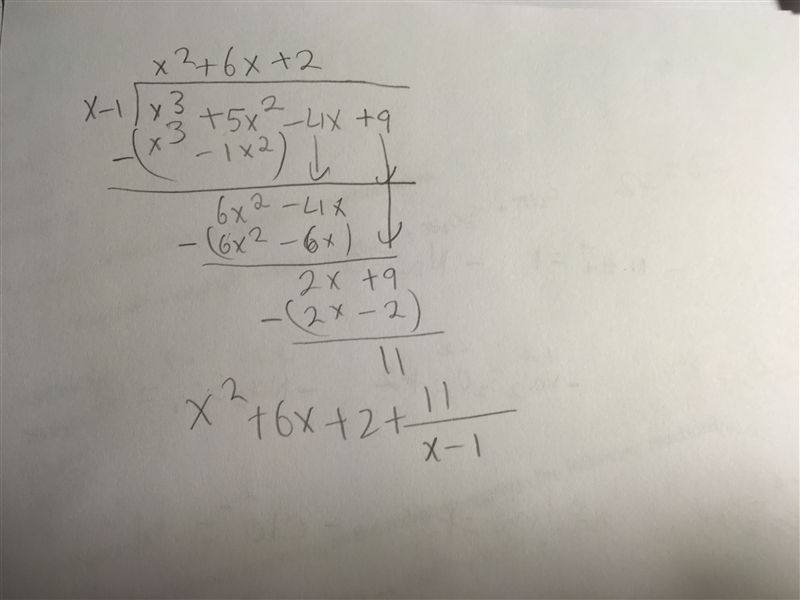 x²+6x+2
x-1 x³+5x²-4x+9
-(x³-1x²)
6x²-4x
-(6x²-6x)
2x+9
-(2x-2)
11
x²+6x+2+11/x-1